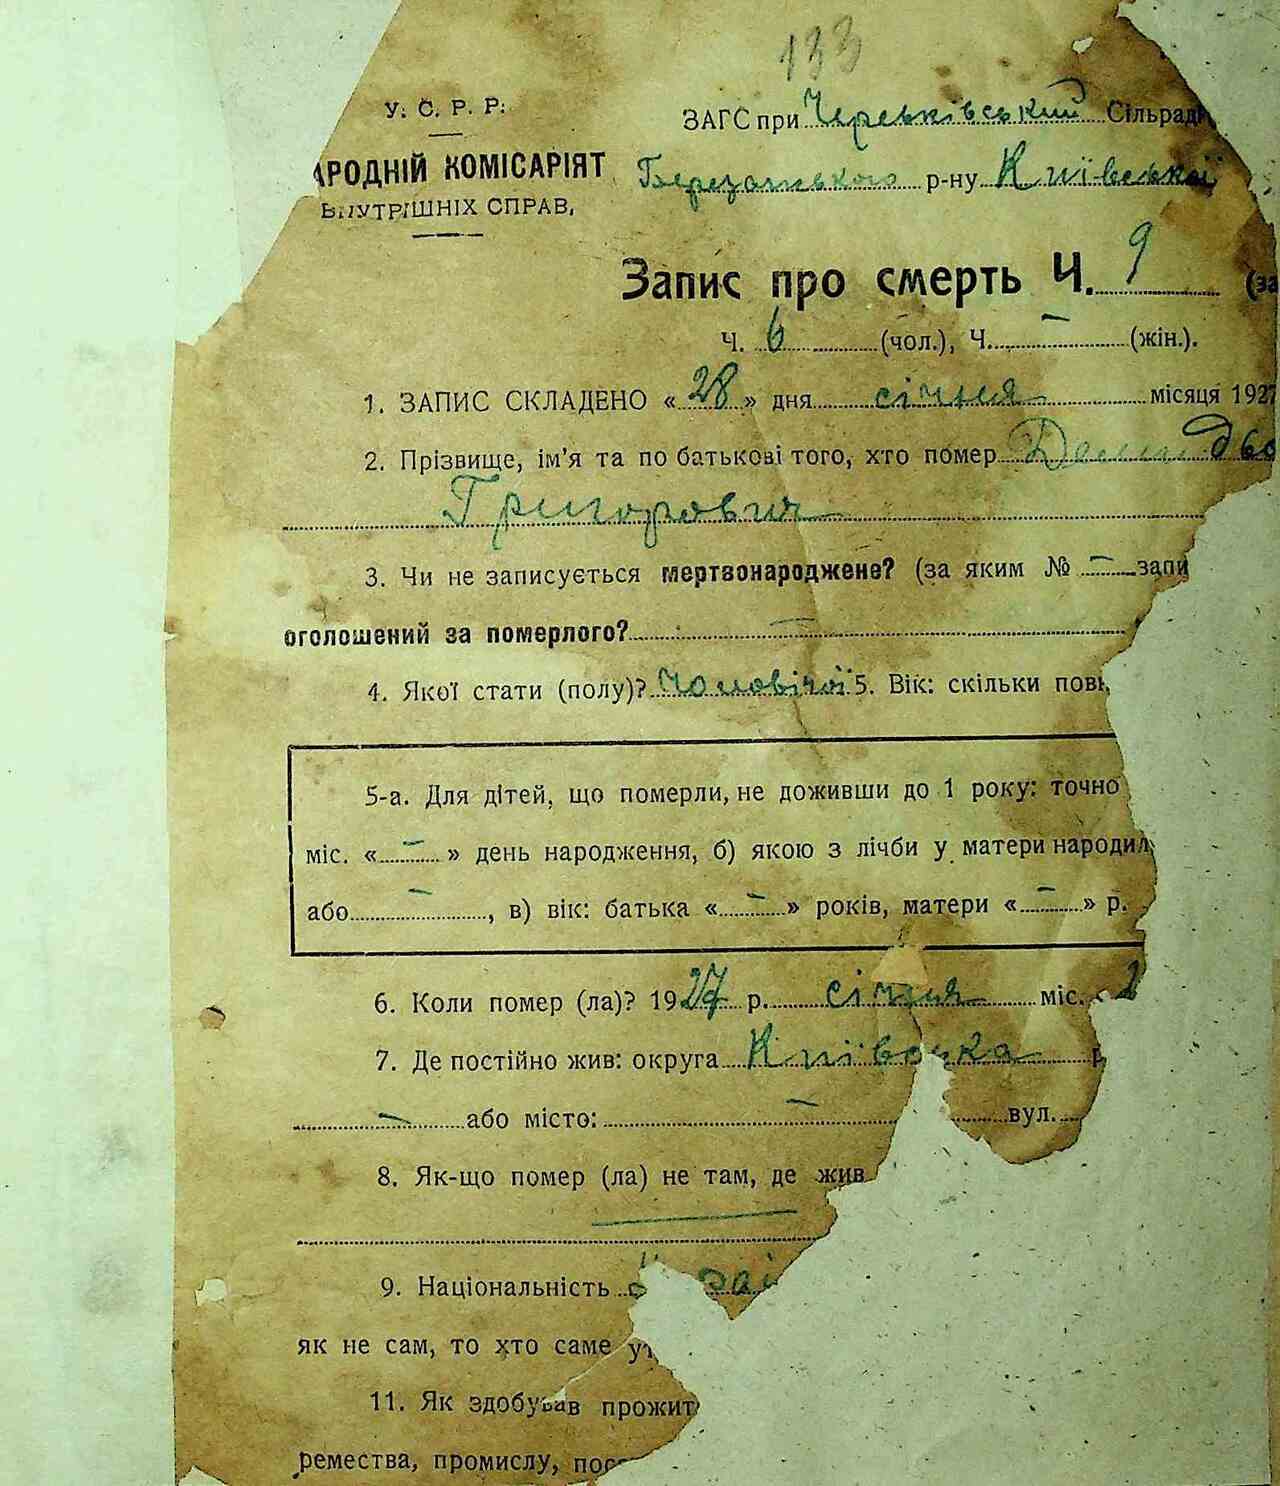 133
У. С. Р. Р.
АРОДНІЙ КОМІСАРІЯТ
ВНУТРІШНІХ СПРАВ,
ЗАГС при Сільрад
Березанського р-ну Київської
Запис про смерть Ч. 9 (за
Ч. 6 (чол.), Ч. – (жін.).
1. ЗАПИС СКЛАДЕНО «28» дня січня місяця 1927
2. Прізвище, ім'я та по батькові того, хто помер
Григорович
3. Чи не записується мертвонароджене? (за яким № – запи
оголошений за померлого? –
4. Якої стати (полу)? Чоловічої 5. Вік: скільки повн
5-а. Для дітей, що померли, не доживши до 1 року: точно
міс. « – » день народження, б) якою з лічби у матери народил
або – , в) вік: батька « – » років, матери « – » р.
6. Коли помер (ла)? 1927 р. січня міс. « 2
7. Де постійно жив: округа Київська р
– або місто: – вул.
8. Як-що помер (ла) не там, де жив
9. Національність
як не сам, то хто саме ут
11. Як здобував прожит
ремества, промислу, пос